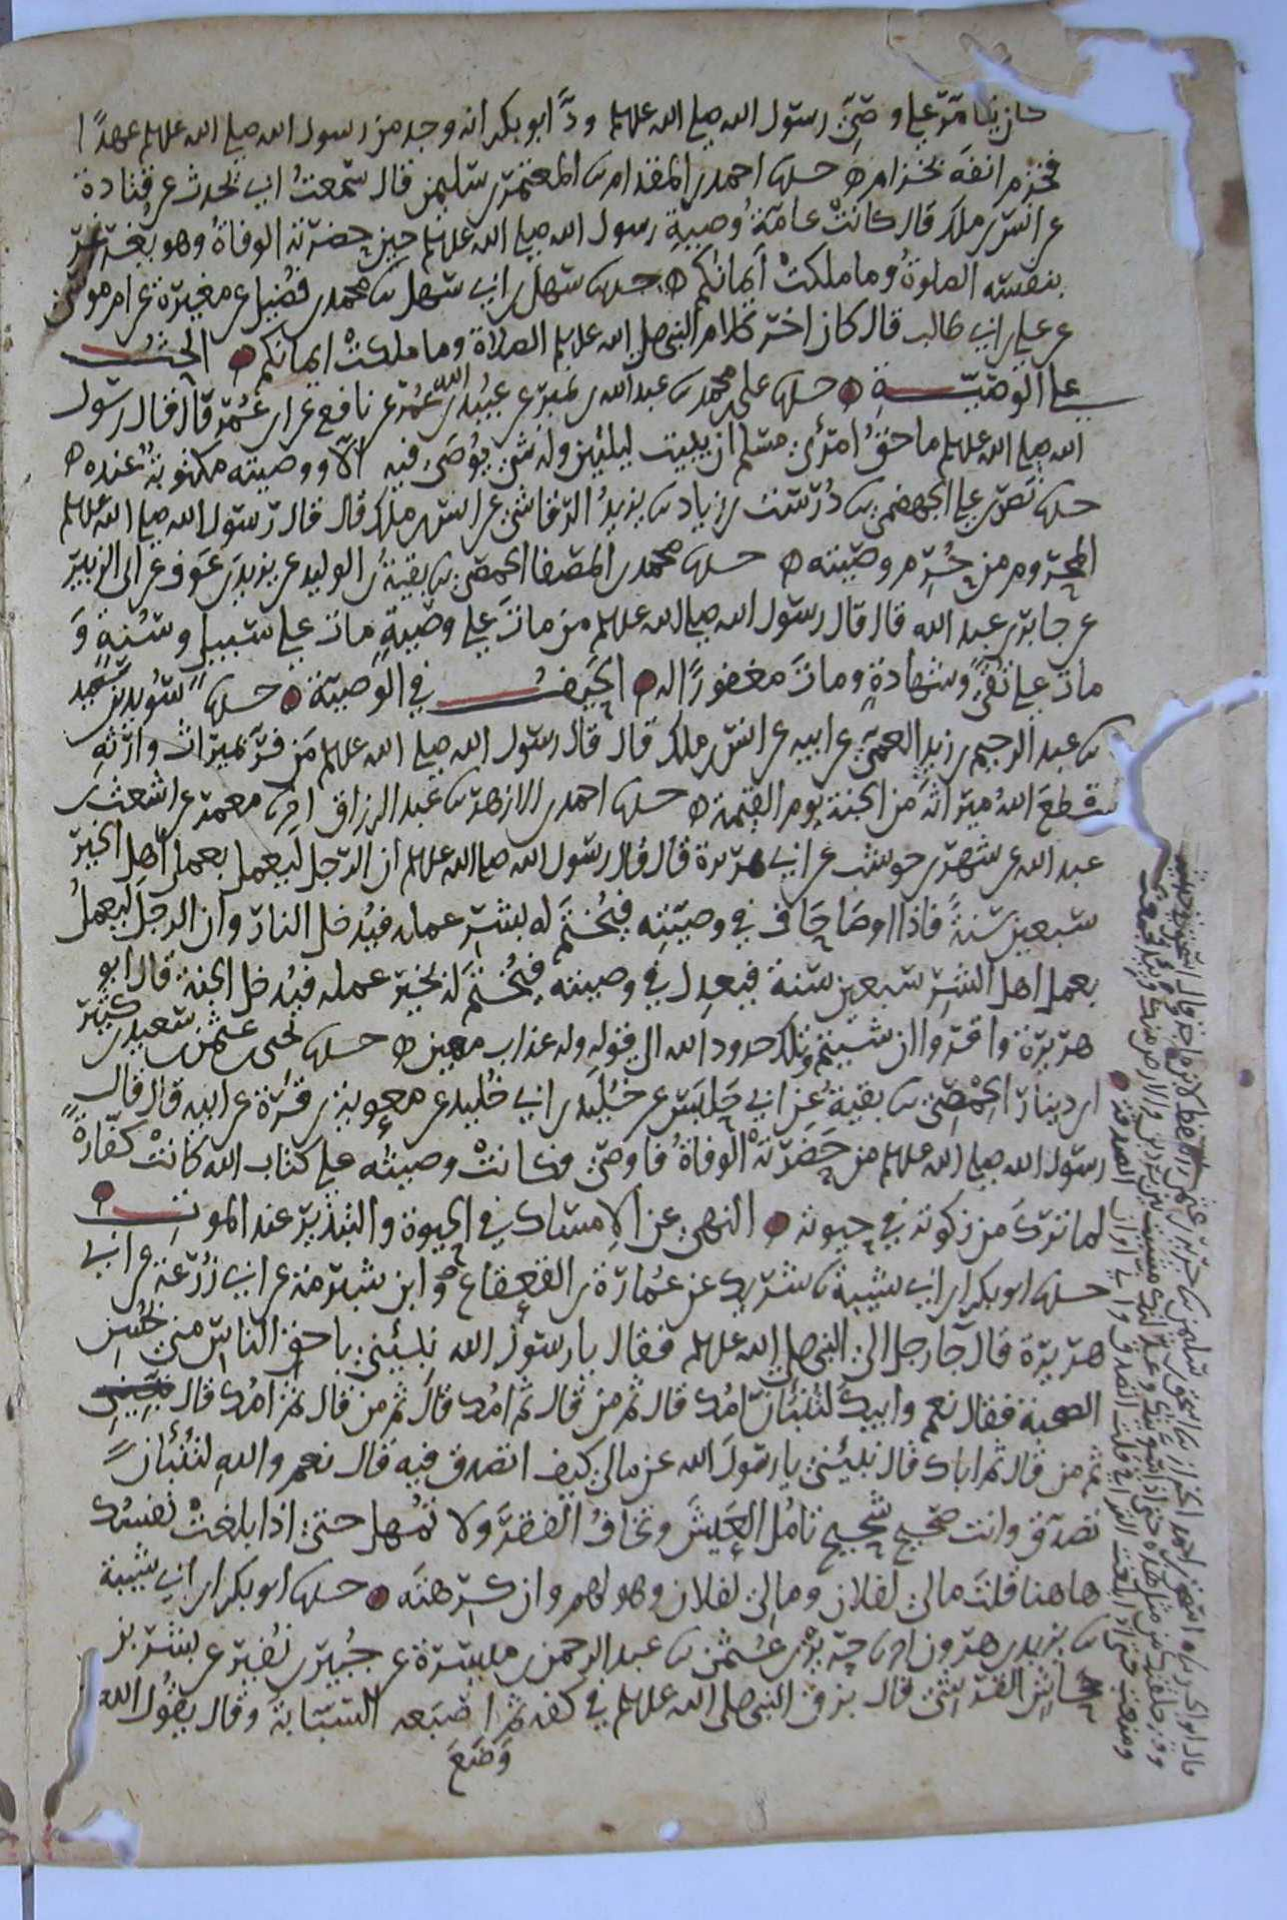 كان يتامر علي وصي رسول الله صلى الله علىهلم ود ابو بكر انه وجد من رسول الله صلى الله علىهلم عهدا
فخزم انفه بخزام ه حدىا احمد بن المقدام ىا المعتمر بن سليمن قال سمعت ابي يحدث عن قتادة
عن انس بن ملك قال كانت عامة وصية رسول الله صلى الله علىهلم حين حضرته الوفاة وهو يغرغر
بنفسه الصلوة وما ملكت ايمانكم ه حدىا سهل بن ابي سهل ىا محمد بن فضيل عن مغيرة عن ام موسى
عن علي بن ابي طالب قال كان اخر كلام النبي صلى الله علىهلم الصلاة وما ملكت ايمانكم ه الحث
على الوصية ه حدىا علي بن محمد ىا عبد الله بن نمير عن عبيد الله بن عمر عن نافع عن ابن عمر قال قال رسول
الله صلى الله علىهلم ما حق امرئ مسلم ان يبيت ليلتين وله شئ يوصى فيه الا ووصيته مكتوبة عنده ه
حدىا نصر بن علي الجهضمي ىا درست بن زياد ىا يزيد الرقاشي عن انس بن ملك قال قال رسول الله صلى الله علىهلم
المحروم من حرم وصيته ه حدىا محمد بن المصفا الحمصي ىا بقية بن الوليد عن يزيد بن عوف عن ابي الزبير
عن جابر بن عبد الله قال قال رسول الله صلى الله علىهلم من مات على وصية مات على سبيل وسنة و
مات على تقى وشهادة ومات مغفورا له ه الحيف في الوصية ه حدىا سويد بن سعيد
ىا عبد الرحيم بن زيد العمي عن ابيه عن انس بن ملك قال قال رسول الله صلى الله علىهلم من فر بميراث وارثه
قطع الله ميراثه من الجنة يوم القيمة ه حدىا احمد بن الازهر ىا عبد الرزاق اىا معمر عن اشعث بن
عبد الله عن شهر بن حوشب عن ابي هريرة قال قال رسول الله صلى الله علىهلم ان الرجل ليعمل بعمل اهل الخير
سبعين سنة فاذا اوصا حاف في وصيته فيختم له بشر عمله فيدخل النار وان الرجل ليعمل
بعمل اهل الشر سبعين سنة فيعدل في وصيته فيختم له بخير عمله فيدخل الجنة قال ابو
هريرة واقروا ان شيتم وتلك حدود الله الى قوله وله عذاب مهين ه حدىا يحيى بن عثمن بن سعيد بن كثير
ابن دينار الحمصي ىا بقية عن ابي حلبس عن خليد بن ابي خليد عن معوية بن قرة عن ابيه قال قال
رسول الله صلى الله علىهلم من حضرته الوفاة فاوصى فكانت وصيته على كتاب الله كانت كفارة
لما ترك من زكوته في حيوته ه النهي عن الامساك في الحيوة والتبذير عند الموت ه
حدىا ابو بكر ابن ابي شيبة ىا شريك عن عمارة بن القعقاع وابن شبرمة عن ابي زرعة عن ابي
هريرة قال جا رجل الى النبي صلى الله علىهلم فقال يا رسول الله نبئني باحق الناس مني بحسن
الصحبة فقال نعم وابيك لتنبأن امك قال ثم من قال ثم امك قال ثم من قال ثم امك قال
ثم من قال ثم اباك قال نبئني يا رسول الله عن مالي كيف اتصدق فيه قال نعم والله لتنبأن
تصدق وانت صحيح شحيح تامل العيش وتخاف الفقر ولا تمهل حتى اذا بلغت نفسك
هاهنا قلت مالي لفلان ومالي لفلان وهو لهم وان كرهته ه حدىا ابو بكر ابن ابي شيبة
ىا يزيد بن هرون اىا حريز بن عثمن ىا عبد الرحمن بن ميسرة عن جبير بن نفير عن بشر بن
جحاش القرشي قال بزق النبي صلى الله علىهلم في كفه ثم اصبعه السبابة وقال يقول الله
وضع